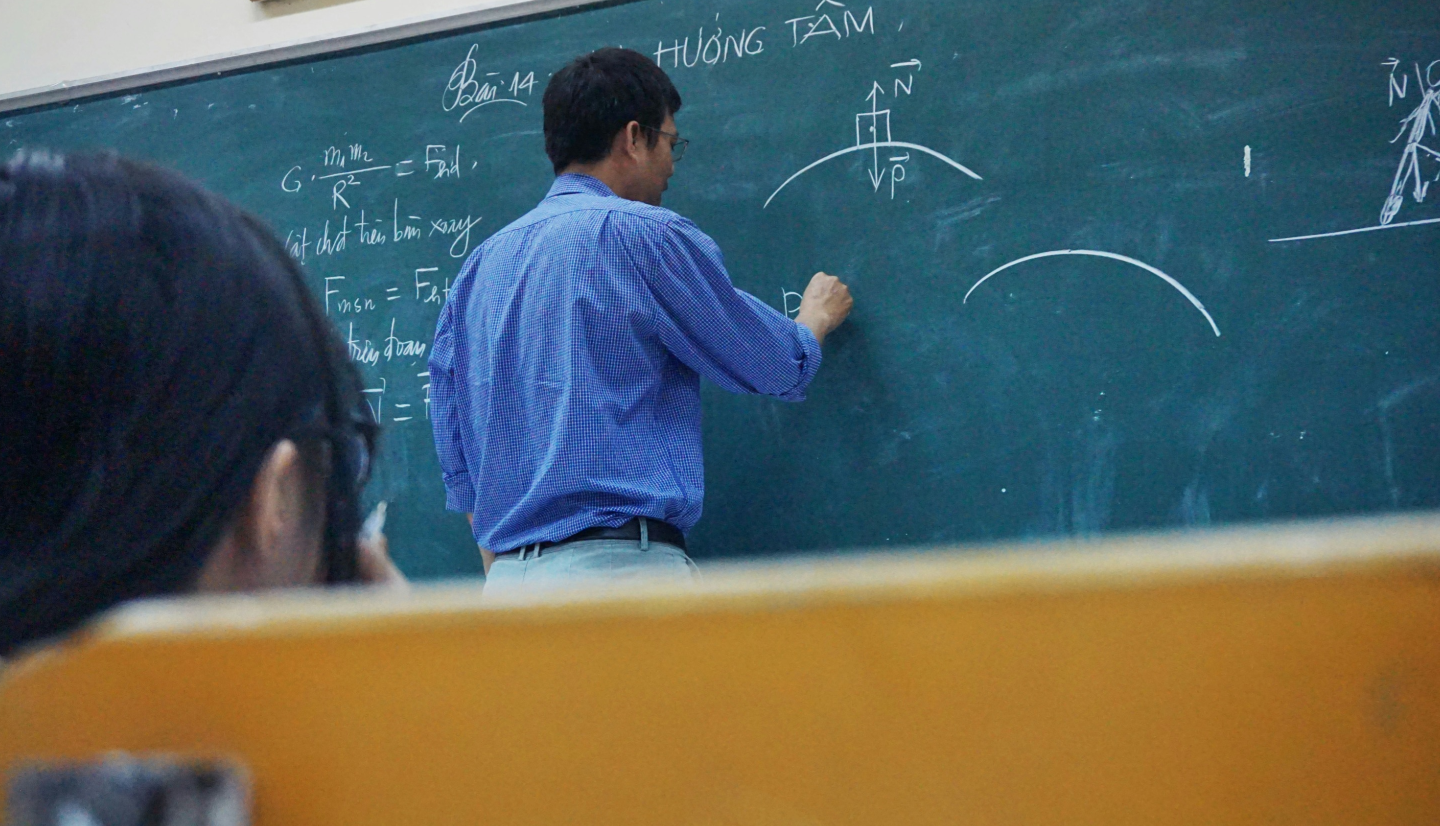 Bài 14 HƯỚNG TÂM.
G. m₁m₂ / R² = Fhd.
chất trên bàn xoay
Fmsn = Fht
trên đoạn
N⃗ =
N⃗
P⃗
P
N⃗